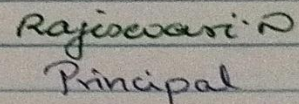 Rajiswari.D
Principal